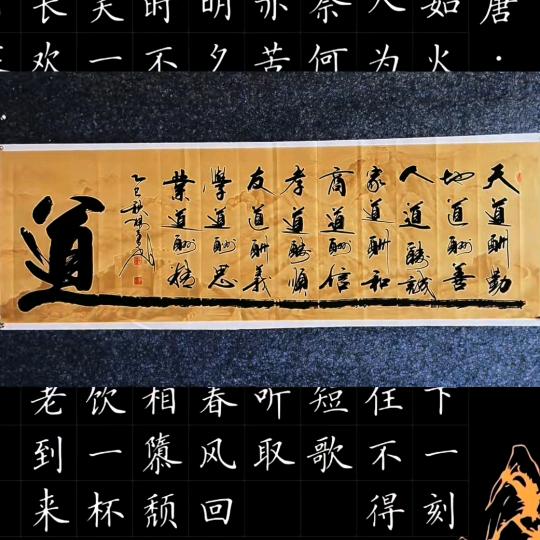 唐·
如火
入为
奈何
亦苦
明夕
时不
笑一
长欢
天道酬勤
地道酬善
人道酬誠
家道酬和
商道酬信
孝道酬順
友道酬義
學道酬思
業道酬精
乙巳秋
道
下一刻
住不得
短歌
听取
春风回
相隳颓
饮一杯
老到来